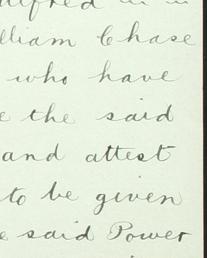 lliam Chase
who have
e the said
and attest
to be given
e said Power